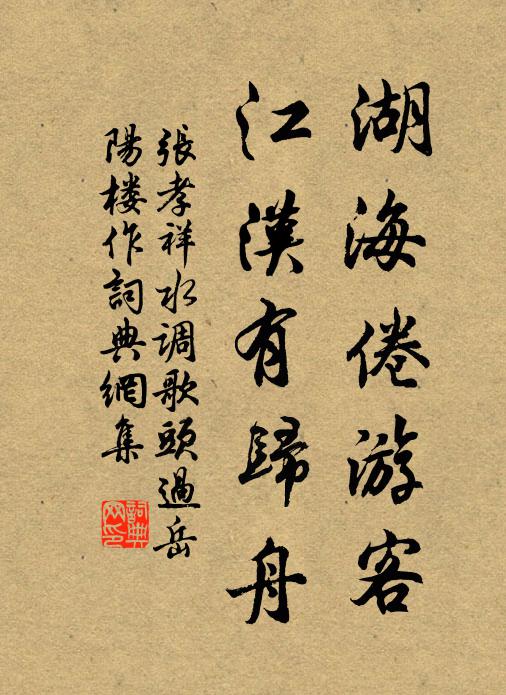 湖海倦游客
江漢有歸舟
張孝祥水调歌頭過岳
陽楼作詞典網集
詞典網印